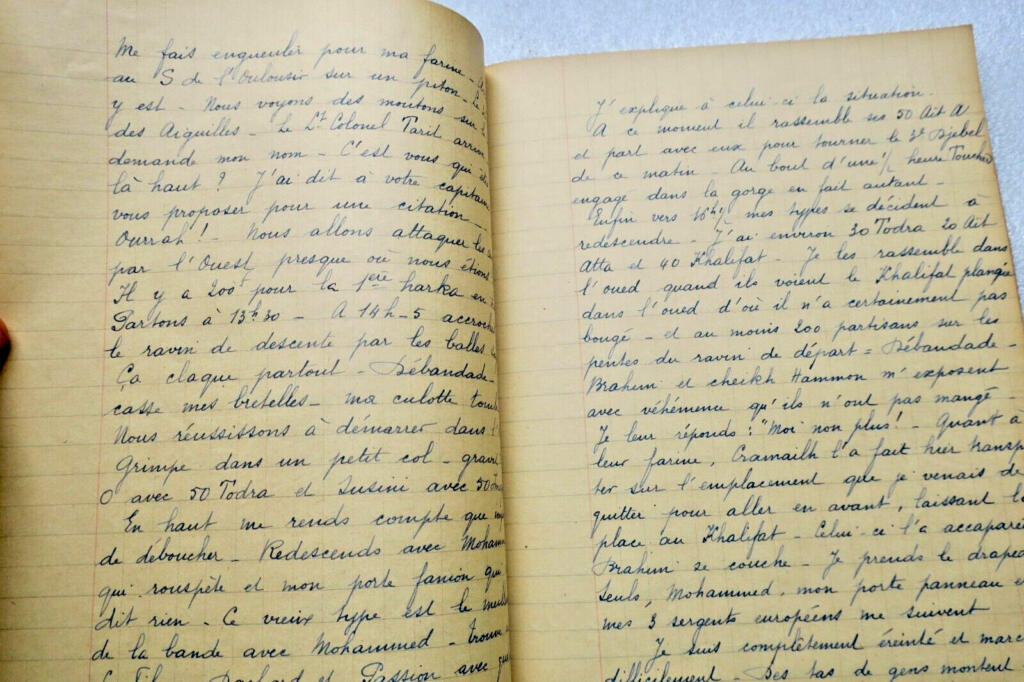 Me fais engueuler pour ma farine -
au S de l'Oulousir sur un piton - le
y est - Nous voyons des moutons sur
des Aiguilles - Le Lt Colonel Tarit arrive
demande mon nom - C'est vous qui
là haut ? J'ai dit à votre capitaine
vous proposer pour une citation -
Ourrah ! - Nous allons attaquer
par l'Ouest presque où nous étions
Il y a 200 pour la 1ère harka en
Partons à 13h30 - A 14h-5 accroch
le ravin de descente par les balles
Ça claque partout - Débandade -
casse mes bretelles - ma culotte tombe
Nous réussissons à démarrer dans l'
Grimpe dans un petit col - gravit
O avec 50 Todra et Susini avec 50
En haut me rends compte que
de déboucher - Redescends avec Mohamm
qui rouspète et mon porte fanion qui
dit rien - Ce vieux type est le meill
de la bande avec Mohammed - trouve
et Passion avec
J'explique à celui-ci la situation.
A ce moment il rassemble ses 50 Ait A
et part avec eux pour tourner le 3e Djebel
de ce matin - Au bout d'une 1/2 heure
engagé dans la gorge en fait autant -
Enfin vers 16h mes types se décident à
redescendre - J'ai environ 30 Todra 20 Aït
Atta et 40 Khalifat - Je les rassemble dans
l'oued quand ils voient le Khalifat planqué
dans l'oued d'où il n'a certainement pas
bougé - et au moins 200 partisans sur les
pentes du ravin de départ = Débandade -
Brahim et cheikh Hammon m'exposent
avec véhémence qu'ils n'ont pas mangé -
Je leur réponds : "Moi non plus ! - Quant à
leur farine, Cramailh l'a fait hier transp
ter sur l'emplacement que je venais de
quitter pour aller en avant, laissant la
place au Khalifat - Celui-ci l'a accaparée
Brahim se couche - Je prends le drapeau
Seuls, Mohammed, mon porte panneau et
mes 3 sergents européens me suivent
Je suis complètement éreinté et march
difficilement - Des tas de gens montent